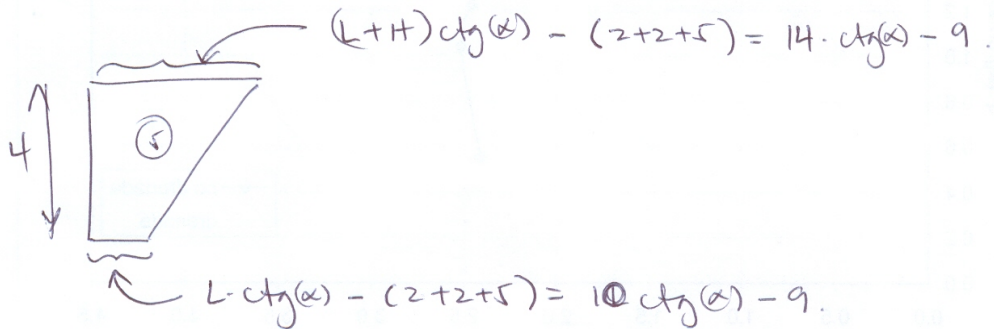 (L+H) ctg(α) - (2+2+5) = 14. ctg(α) - 9.
4
5
L. ctg(α) - (2+2+5) = 10 ctg(α) - 9.